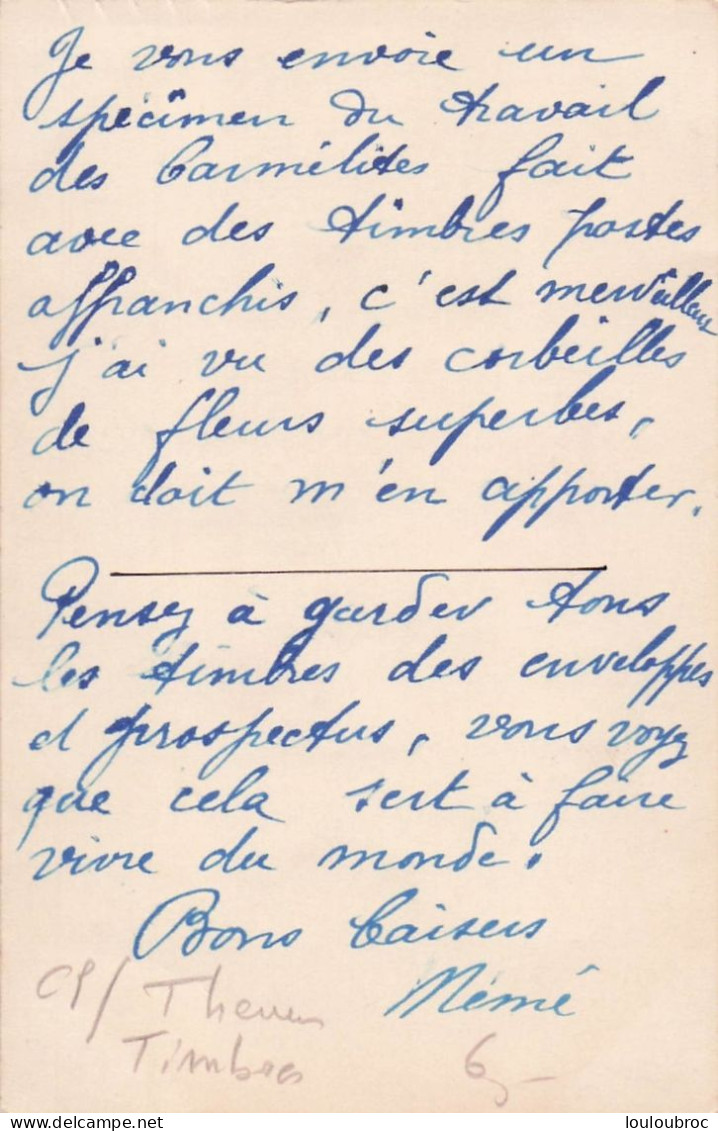 Je vous envoie un
spécimen du travail
des Carmélites fait
avec des timbres postes
affranchis, c'est merveilleux
j'ai vu des corbeilles
de fleurs superbes,
on doit m'en apporter.
Pensez à garder tous
les timbres des enveloppes
et prospectus, vous voyez
que cela sert à faire
vivre du monde.
Bons baisers
Mémé
CP/
Timbres 6,-
louloubroc